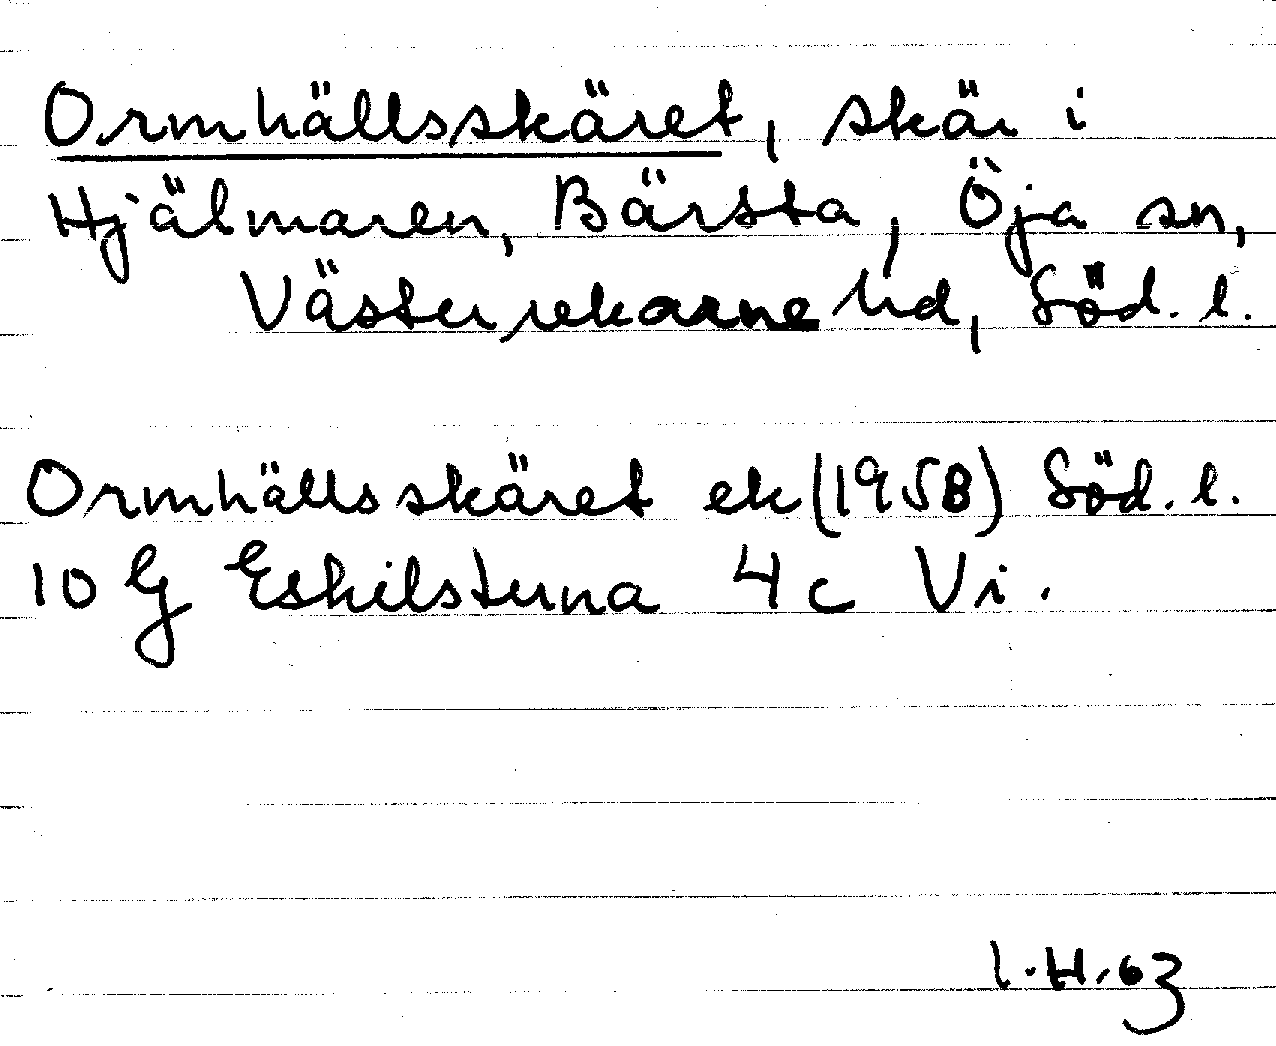 Ormhällsskäret, skär i
Hjälmaren, Bärsta, Öja sn,
Västerrekarne hd, Söd. l.
Ormhällsskäret ek (1958) Söd. l.
10 G Eskilstuna 4 c Vi.
I.H. 63